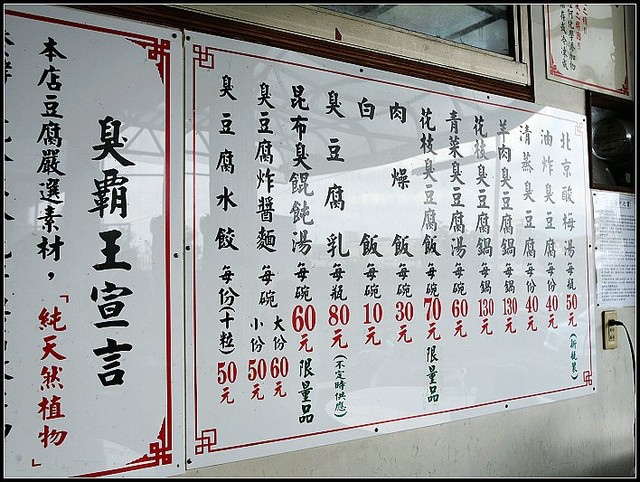 北京酸梅湯 每瓶 50元 (新瓶裝)
油炸臭豆腐 每份 40元
清蒸臭豆腐 每份 40元
羊肉臭豆腐鍋 每鍋 130元
花枝臭豆腐鍋 每鍋 130元
青菜臭豆腐湯 每碗 60元
花枝臭豆腐飯 每碗 70元 限量品
肉燥飯 每碗 30元
白飯 每碗 10元
臭豆腐乳 每瓶 80元 (不定時供應)
昆布臭餛飩湯 每碗 60元 限量品
臭豆腐炸醬麵 每碗 大份 60元
小份 50元
臭豆腐水餃 每份(十粒) 50元
臭霸王宣言
本店豆腐嚴選素材，「純天然植物」